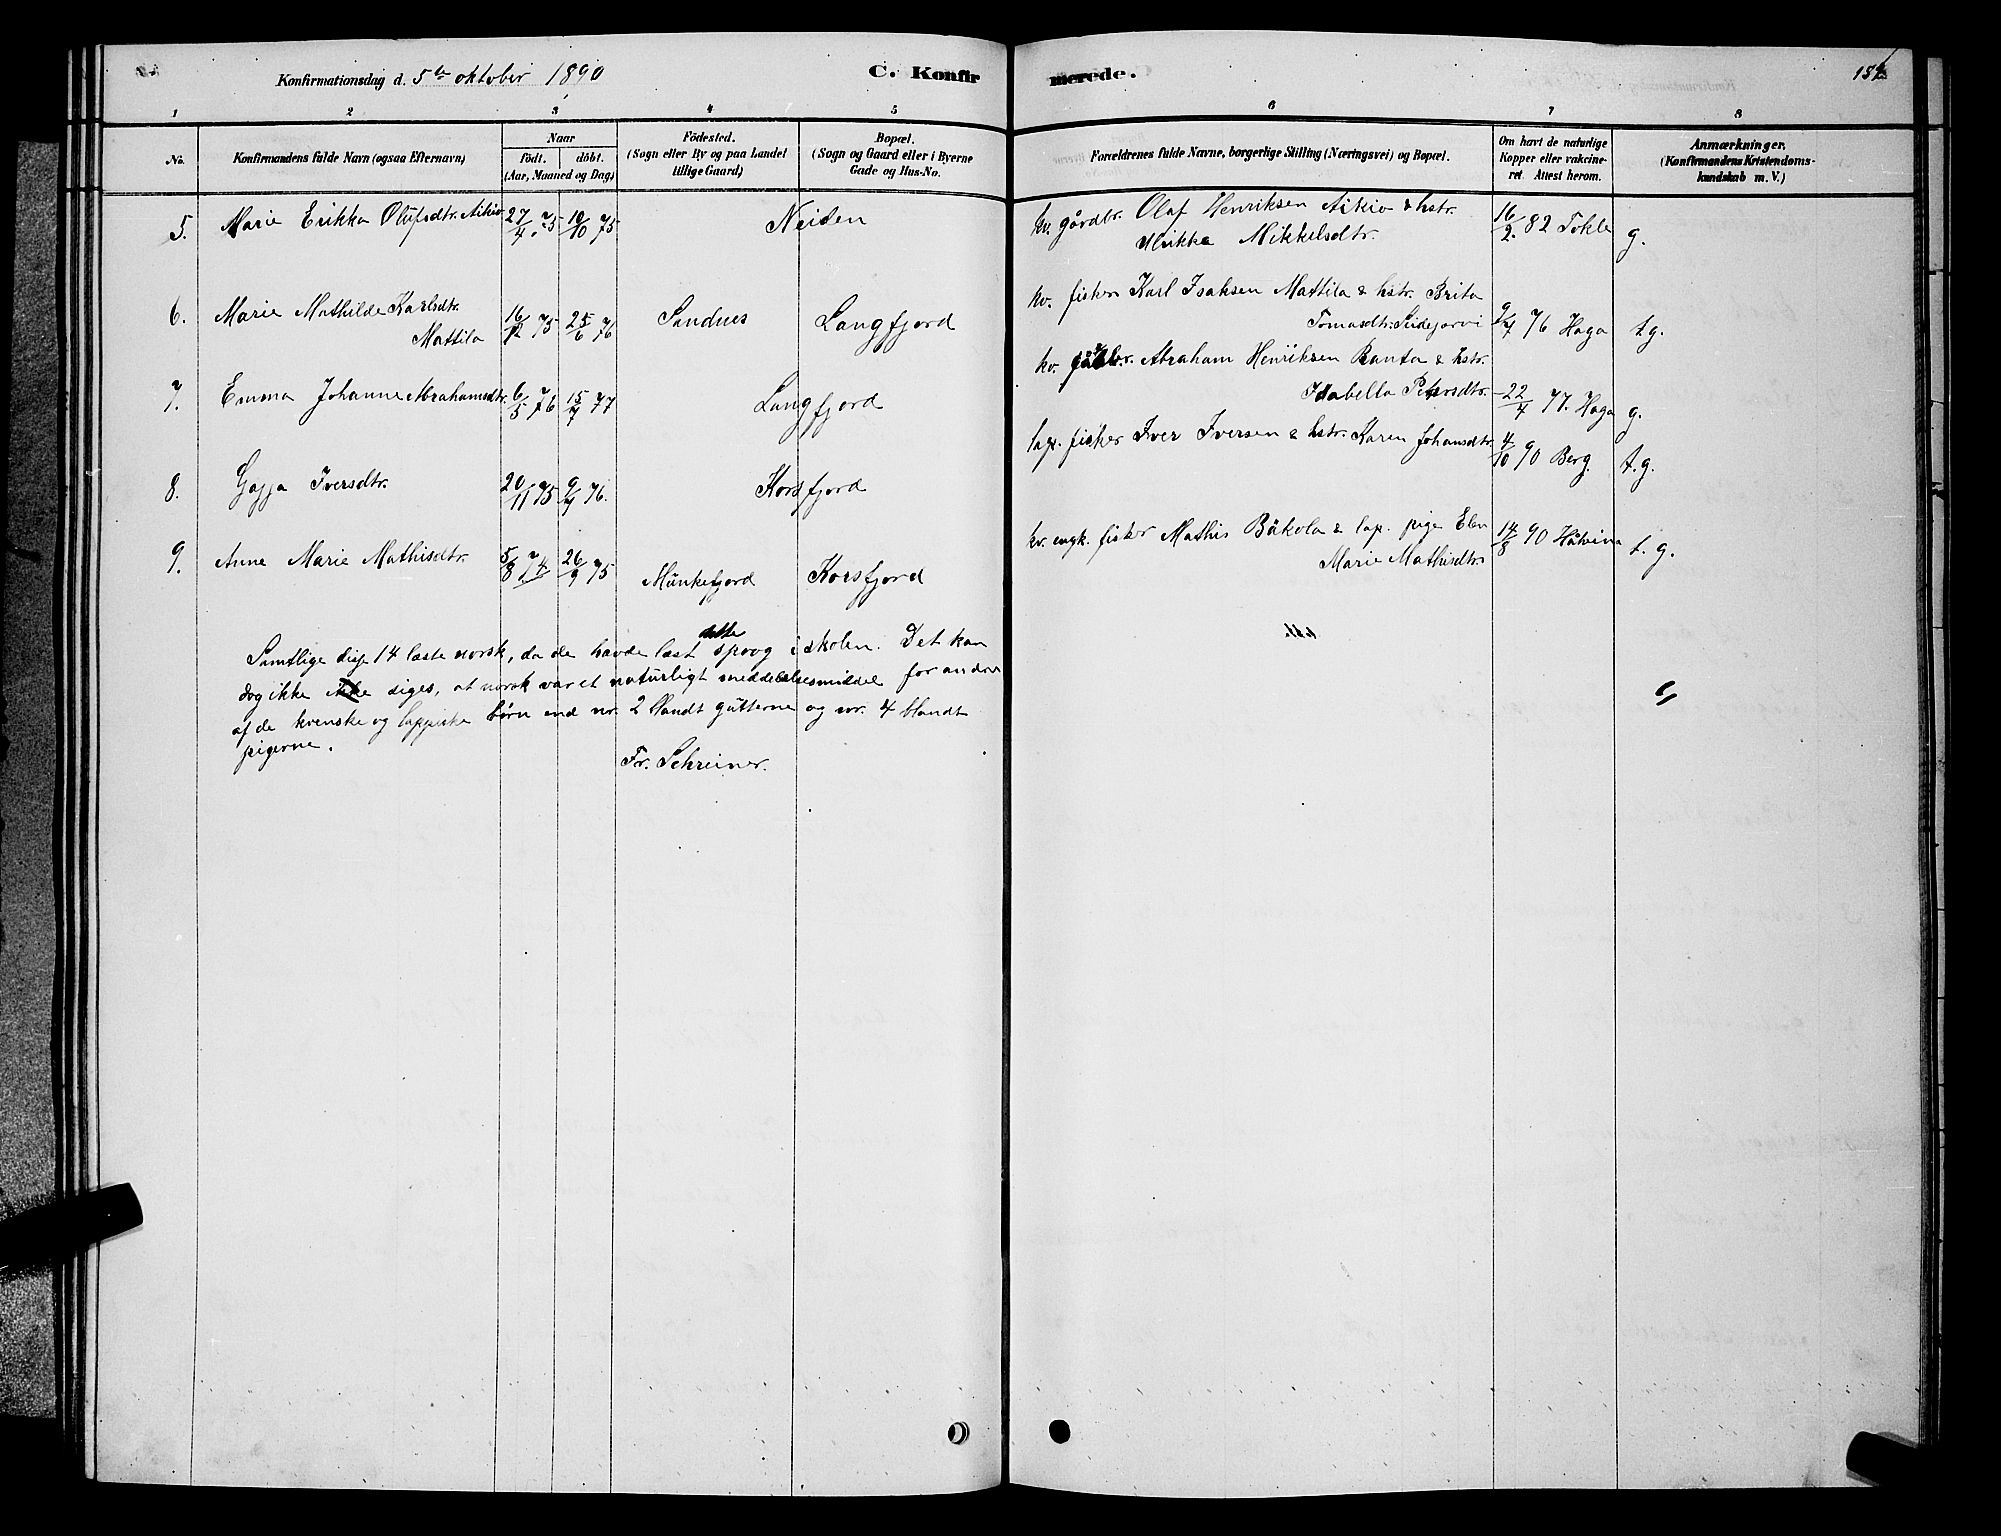 Konfirmationsdag d. 5te oktober 1890
C. Konfirmerede.
1 2 3 4 5 6 7 8
No.
Konfirmandens fulde Navn (ogsaa Efternavn)
Naar
født. døbt.
(Aar, Maaned og Dag)
Födested.
(Sogn eller By og paa Landet
tillige Gaard)
Bopæl.
(Sogn og Gaard eller i Byerne
Gade og Hus-No.
Forældrenes fulde Navne, borgerlige Stilling (Næringsvei) og Bopæl.
Om havt de naturlige
Kopper eller vakcine-
ret. Attest herom.
Anmærkninger.
(Konfirmandens Kristendoms-
kundskab m. V.)
5. Marie Erikka Olufsdtr. Aikio 27/4 75 10/10 75 Neiden kv. gårdbr. Olaf Henriksen Aikio & hstr.
Ulrikka Mikkelsdtr. 16/2 82 Tokle g.
6. Marie Mathilde Karlsdtr.
Mattila 16/12 75 25/6 76 Sandnes Langfjord kv. fisker Karl Isaksen Mattila & hstr. Brita
Tomasdtr. Seidejarvi 9/4 76 Haga t.g.
7. Emma Johanne Abrahamsdtr. 6/5 76 15/4 77 Langfjord kv. Abraham Henriksen Ranta & hstr.
Isabella Petersdtr. 22/4 77. Haga g.
8. Gagga Iversdtr. 20/11 75 9/4 76. Korsfjord lap. fisker Iver Iversen & hstr. Karen Johansdtr. 4/10 90 Berg. t.g.
9. Anne Marie Mathisdtr. 5/8 74 26/9 75 Munkefjord Korsfjord kv. ungk. fisker Mathis Bäkola & lap. pige Elen
Marie Mathisdtr. 14/8 90 t. g.
Samtlige disse 14 læste norsk, da de havde læst dette sprog i skolen. Det kan
dog ikke siges, at norsk var et naturligt meddelelsesmiddel for andre
af de kvenske og lappiske børn end nr. 2 blandt gutterne og nr. 4 blandt
pigerne.
Fr. Schreiner.